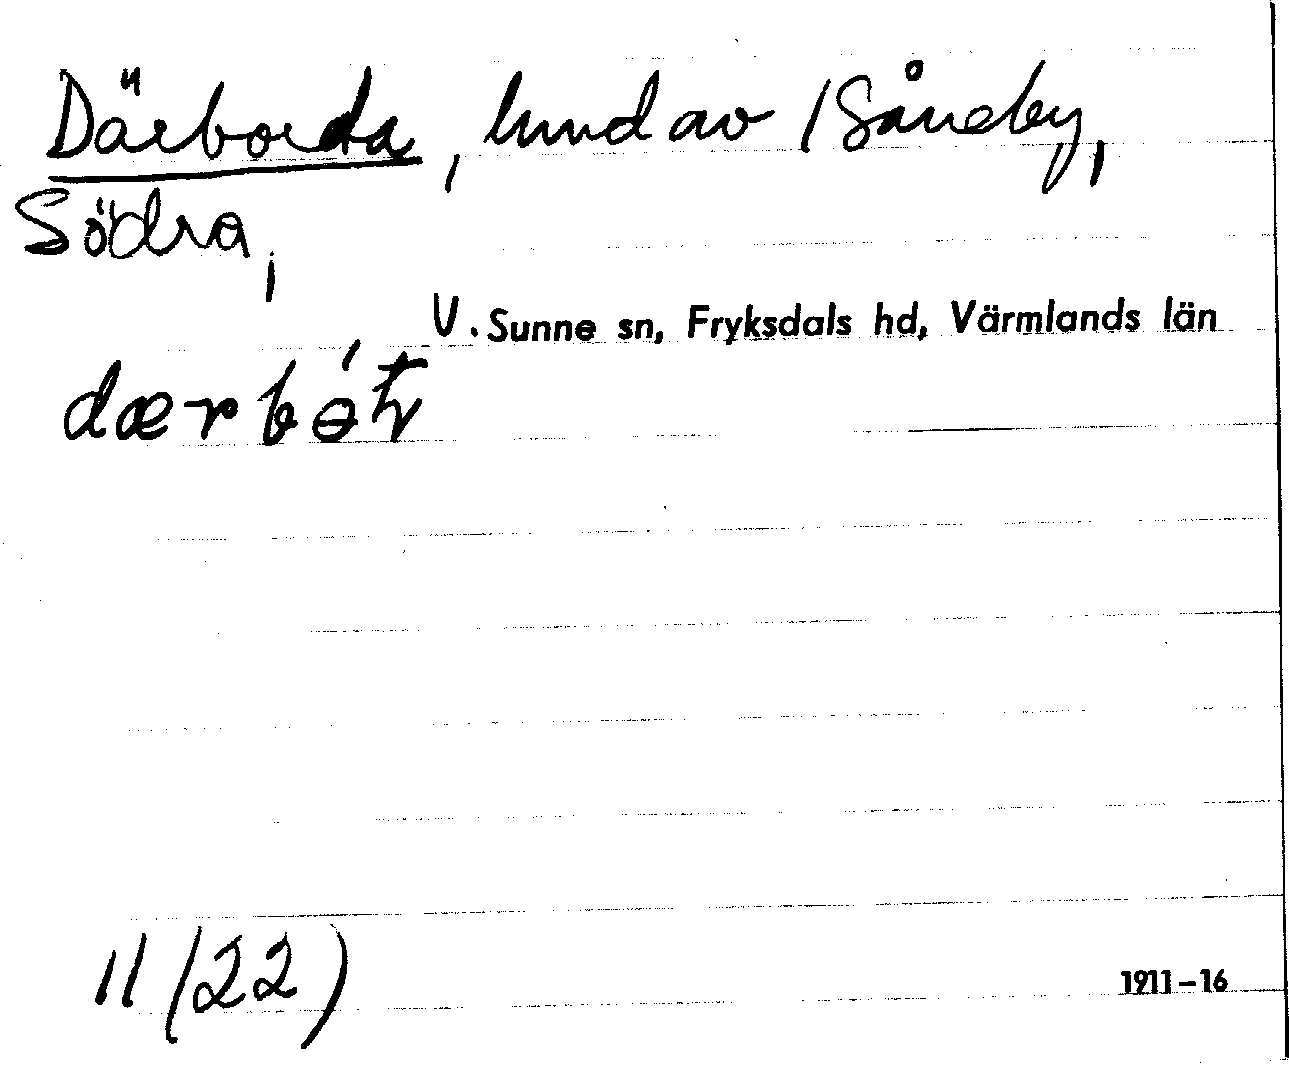 Därborta, hmd av / Såneby,
Södra,
V. Sunne sn, Fryksdals hd, Värmlands län
dærbót
11 (22)
1911–16